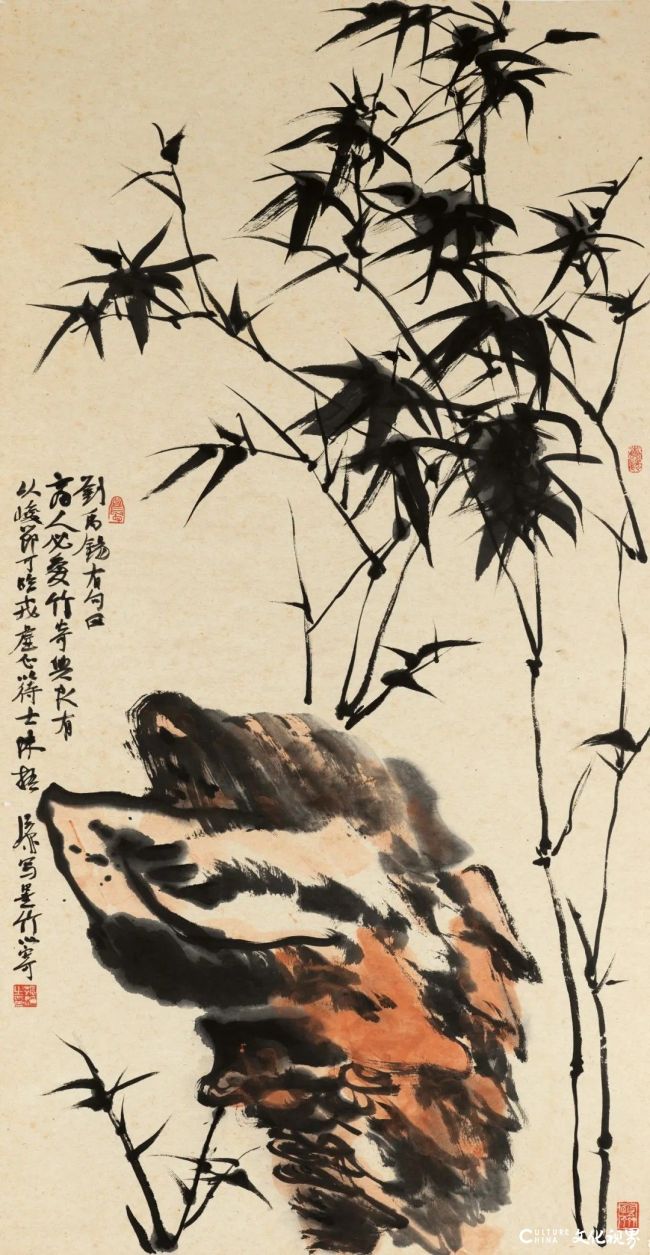 劉禹錫有句曰
高人必愛竹寄興良有
以峻節可臨戎虛心以待士
写是竹以寄
CULTURE CHINA 文化视界